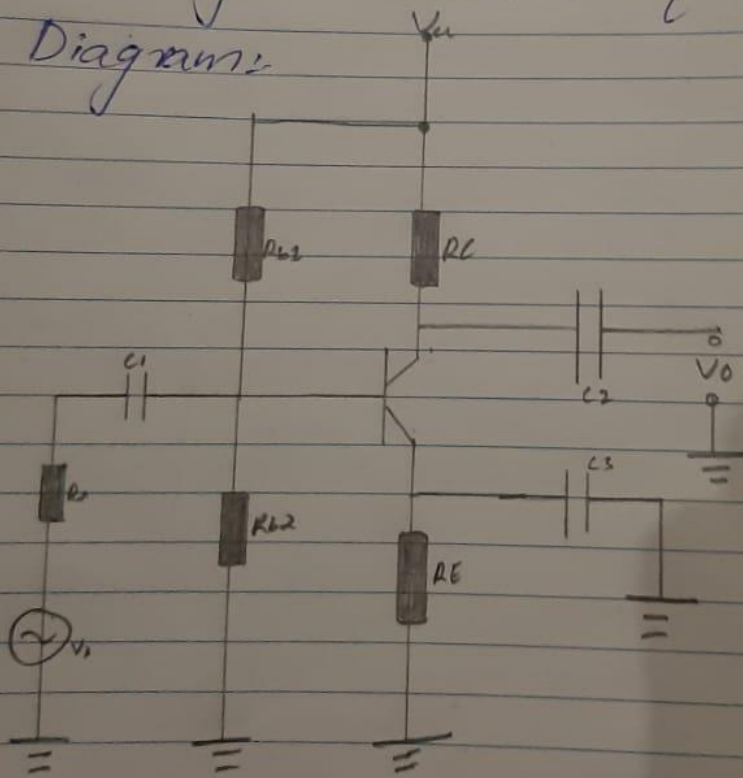 Diagram:
Vcc
Rb1
RC
C1
C2
Vo
C3
Rs
Rb2
RE
Vs